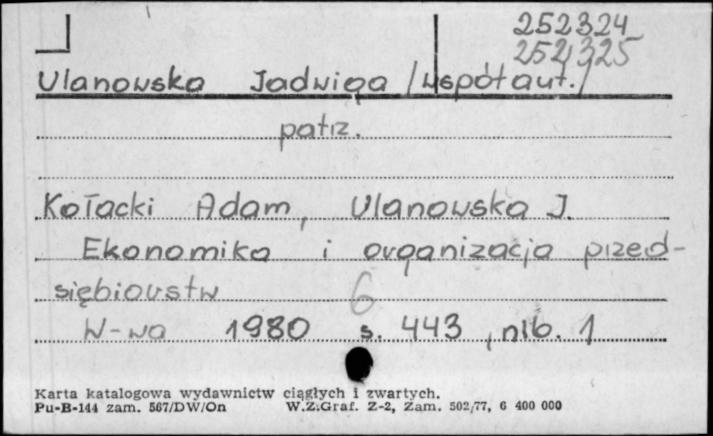 252324
252325
Ulanowska Jadwiga /współaut./
patrz.
Kołacki Adam, Ulanowska J.
Ekonomika i organizacja przed-
siębiorstw
6
W-wa 1980 s. 443, nlb. 1
Karta katalogowa wydawnictw ciągłych i zwartych.
Pu-B-144 zam. 567/DW/On W.Z.Graf. Z-2, Zam. 502/77, 6 400 000